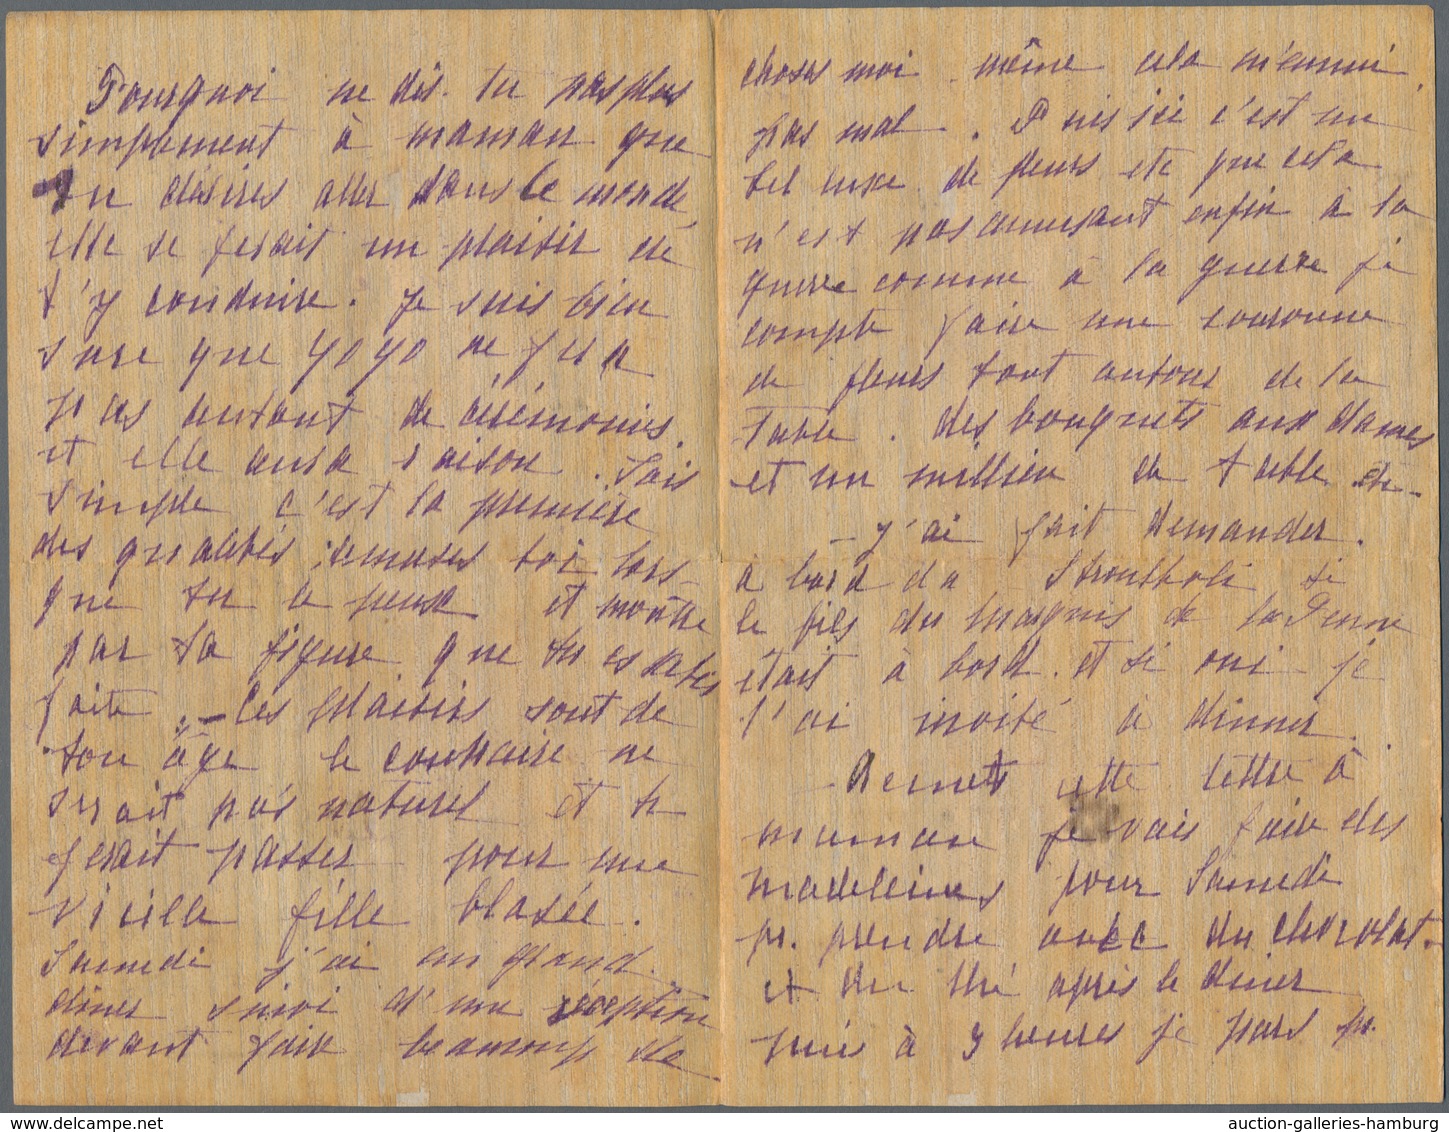 Pourquoi ne dis-tu pas plus
simplement à maman que
tu désires aller dans le monde,
elle se ferait un plaisir de
t'y conduire. Je suis bien
sure que yoyo ne fera
pas autant de cérémonies.
et elle aura raison. Sois
simple c'est la première
des qualités, amuses toi lors-
que tu le peux et montre
par ta figure que tu es satis
faite. – Les plaisirs sont de
ton âge le contraire ne
serait pas naturel et te
ferait passer pour une
vieille fille blasée.
Samedi j'ai un grand
diner suivi d'une réception
devant faire beaucoup de
choses moi même cela m'ennui
pas mal. Puis ici c'est un
bel luxe de fleurs etc que cela
n'est pas amusant enfin à la
guerre comme à la guerre je
compte faire une couronne
de fleurs tout autour de la
Table. des bouquets aux dames
et un millieu de table etc-
– J'ai fait demander
à bord du Stromboli si
le fils du Marquis de la Penne
était à bord. et si oui je
l'ai invité à dinner.
– Remets cette lettre à
maman je vais faire des
madeleines pour Samedi
pr. prendre avec du chocolat
et du thé après le diner
puis à 3 heures je pars pr.
auction-galleries-hamburg